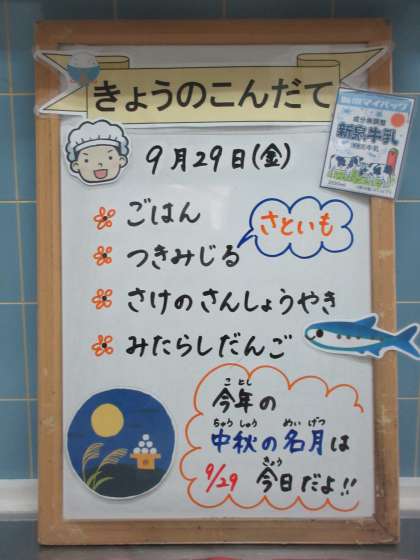 きょうのこんだて
9月29日(金)
ごはん
さといも
つきみじる
さけのさんしょうやき
みたらしだんご
ことし
今年の
ちゅうしゅう めいげつ
中秋の名月は
きょう
9/29 今日だよ!!
マイパック
成分無調整
新泉牛乳